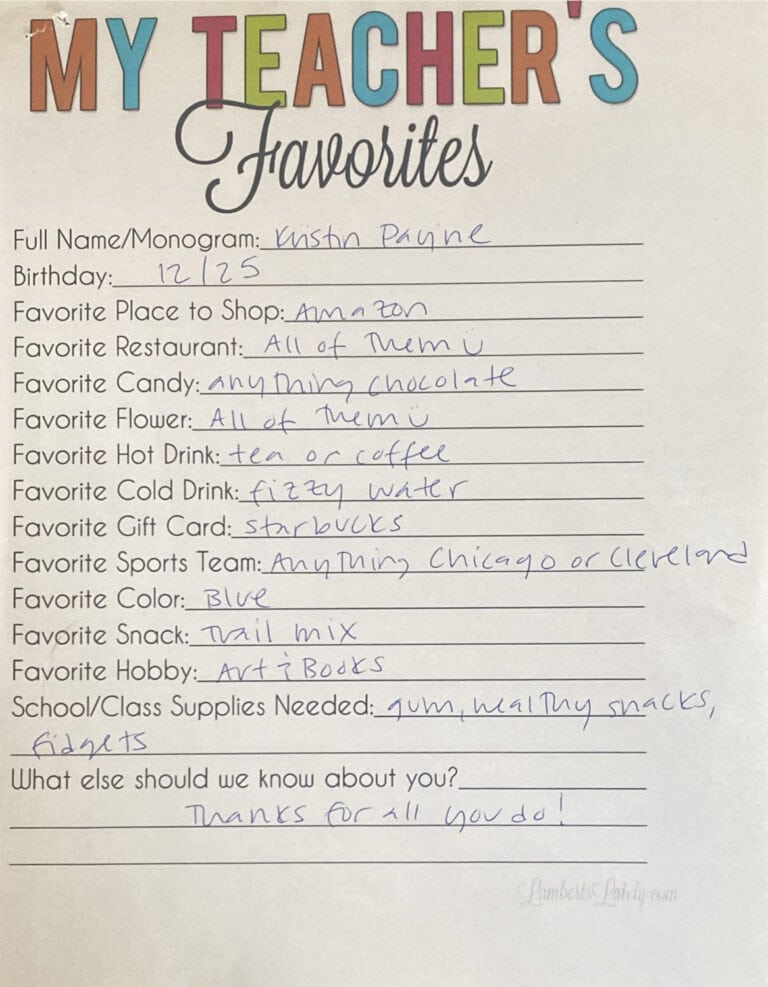 MY TEACHER'S
Favorites
Full Name/Monogram: Kristin Payne
Birthday: 12/25
Favorite Place to Shop: Amazon
Favorite Restaurant: All of Them ü
Favorite Candy: anything chocolate
Favorite Flower: All of Them ü
Favorite Hot Drink: tea or coffee
Favorite Cold Drink: fizzy water
Favorite Gift Card: starbucks
Favorite Sports Team: Anything Chicago or Cleveland
Favorite Color: Blue
Favorite Snack: Trail mix
Favorite Hobby: Art & Books
School/Class Supplies Needed: gum, healthy snacks,
fidgets
What else should we know about you?
Thanks for all you do!
LambertsLately.com